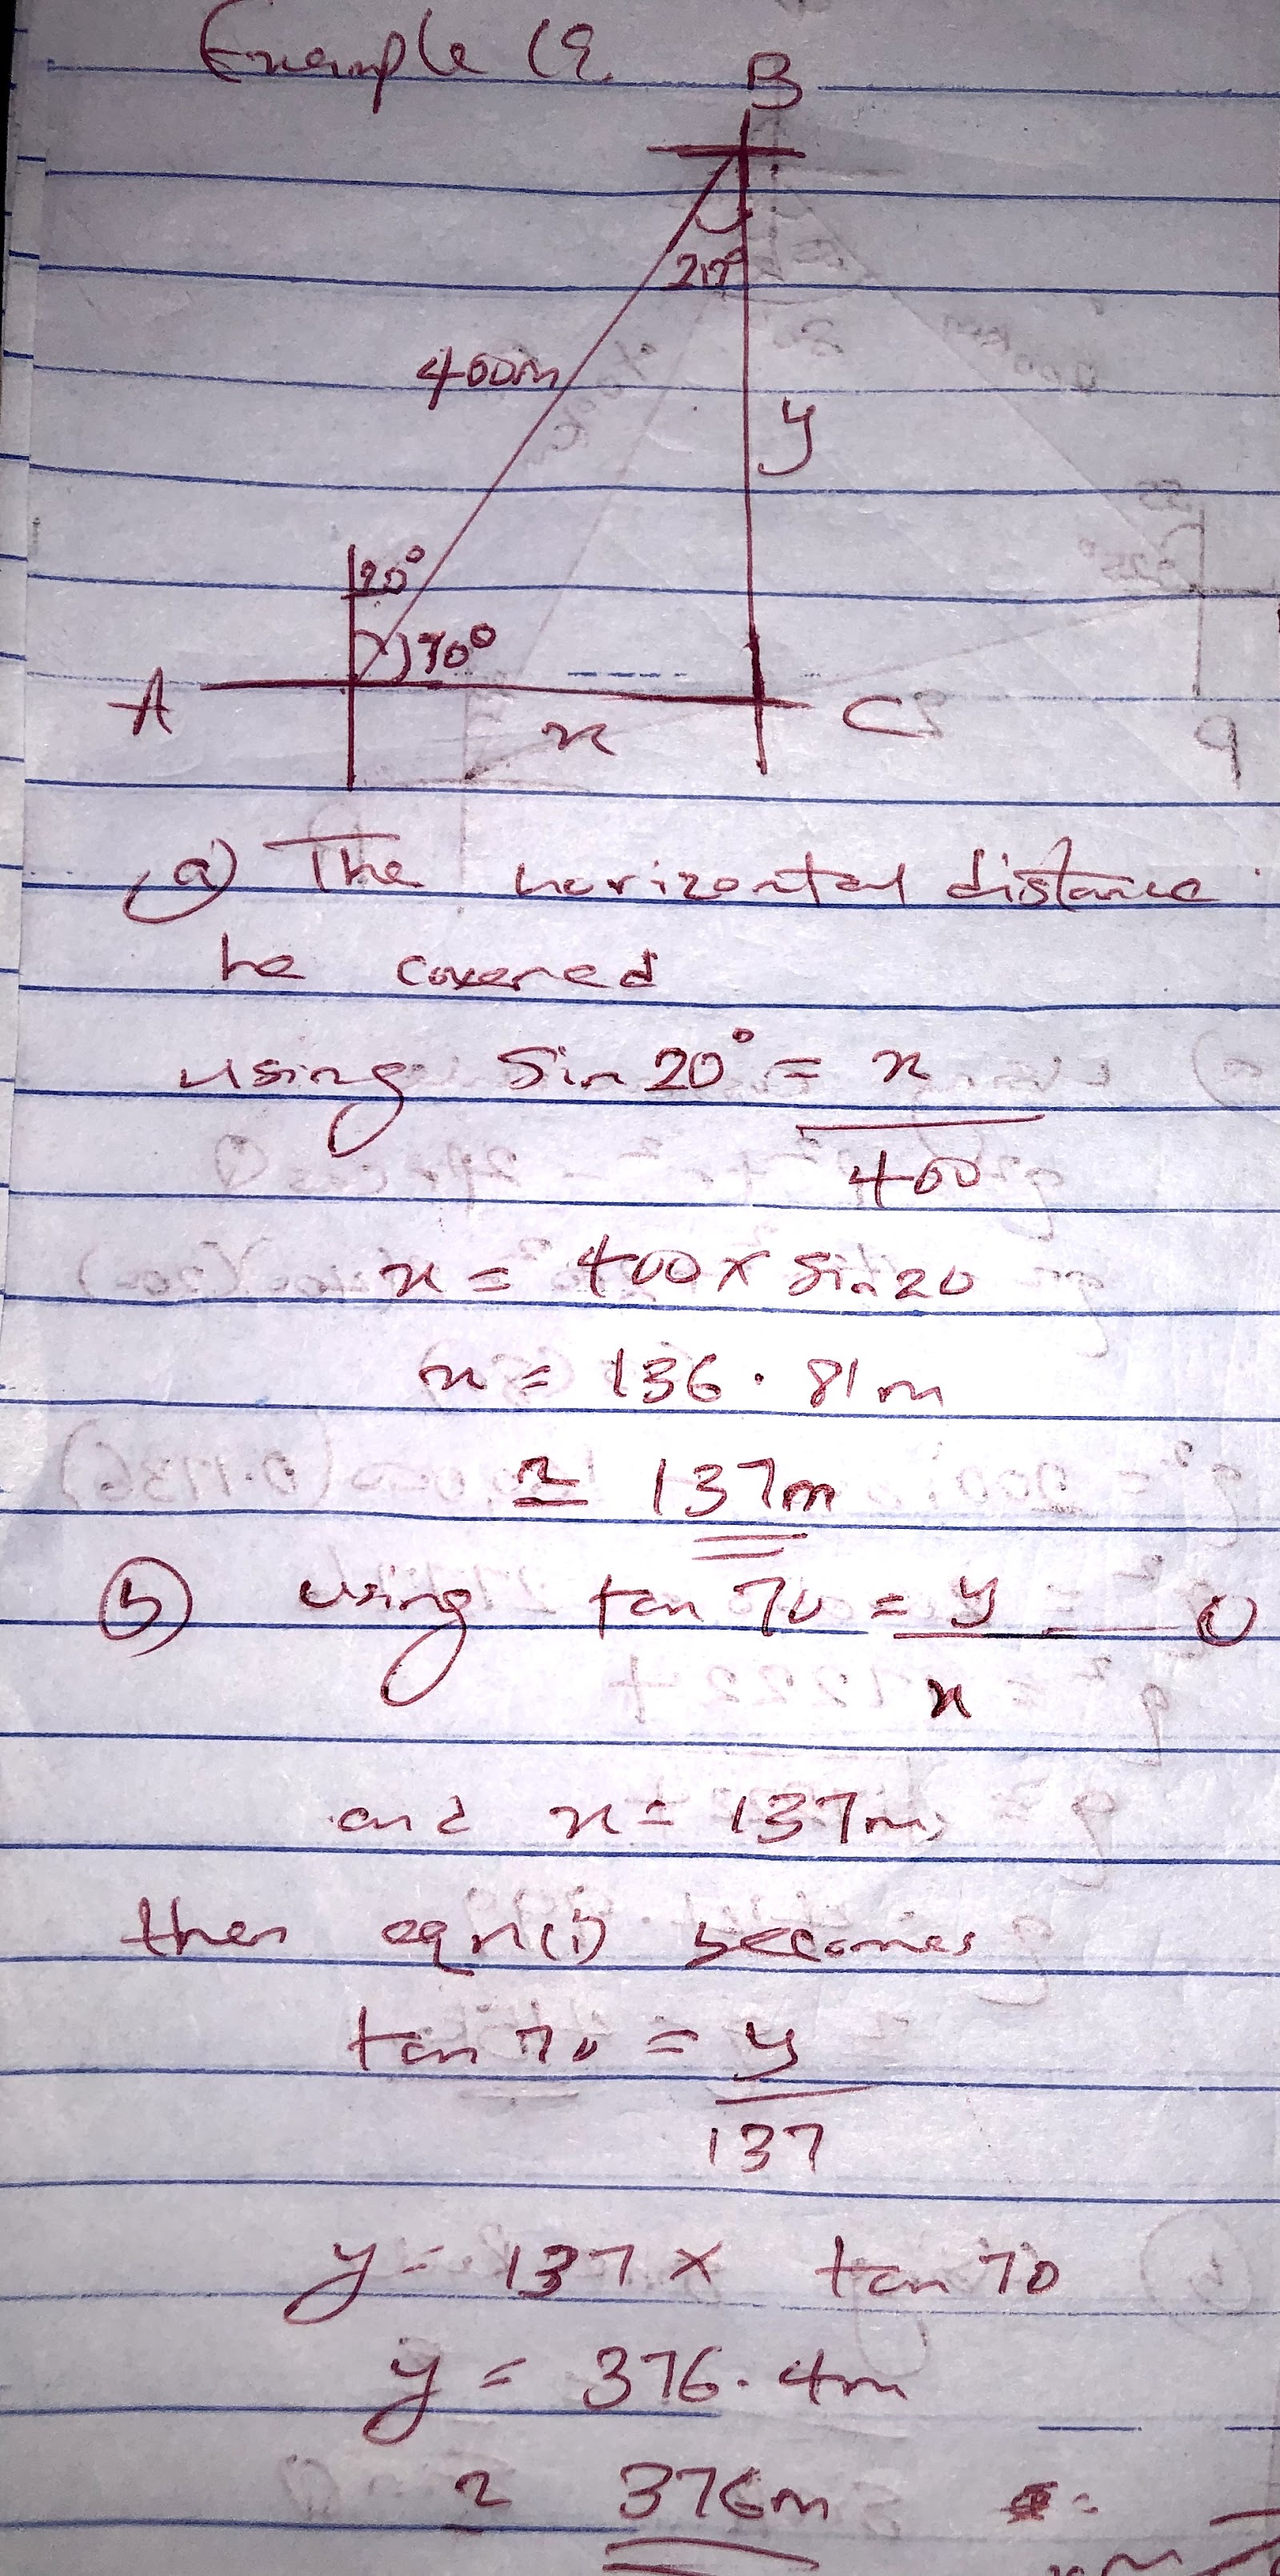 Example 19
B
20°
400m
y
20°
70°
A
x
C
a) The horizontal distance
he covered
using Sin 20° = x
400
x = 400 x Sin 20
x = 136.81m
≃ 137m
(b) using tan 70 = y
x
and x = 137m,
then eqn(i) becomes
tan 70 = y
137
y = 137 x tan 70
y = 376.4m
≃ 376m